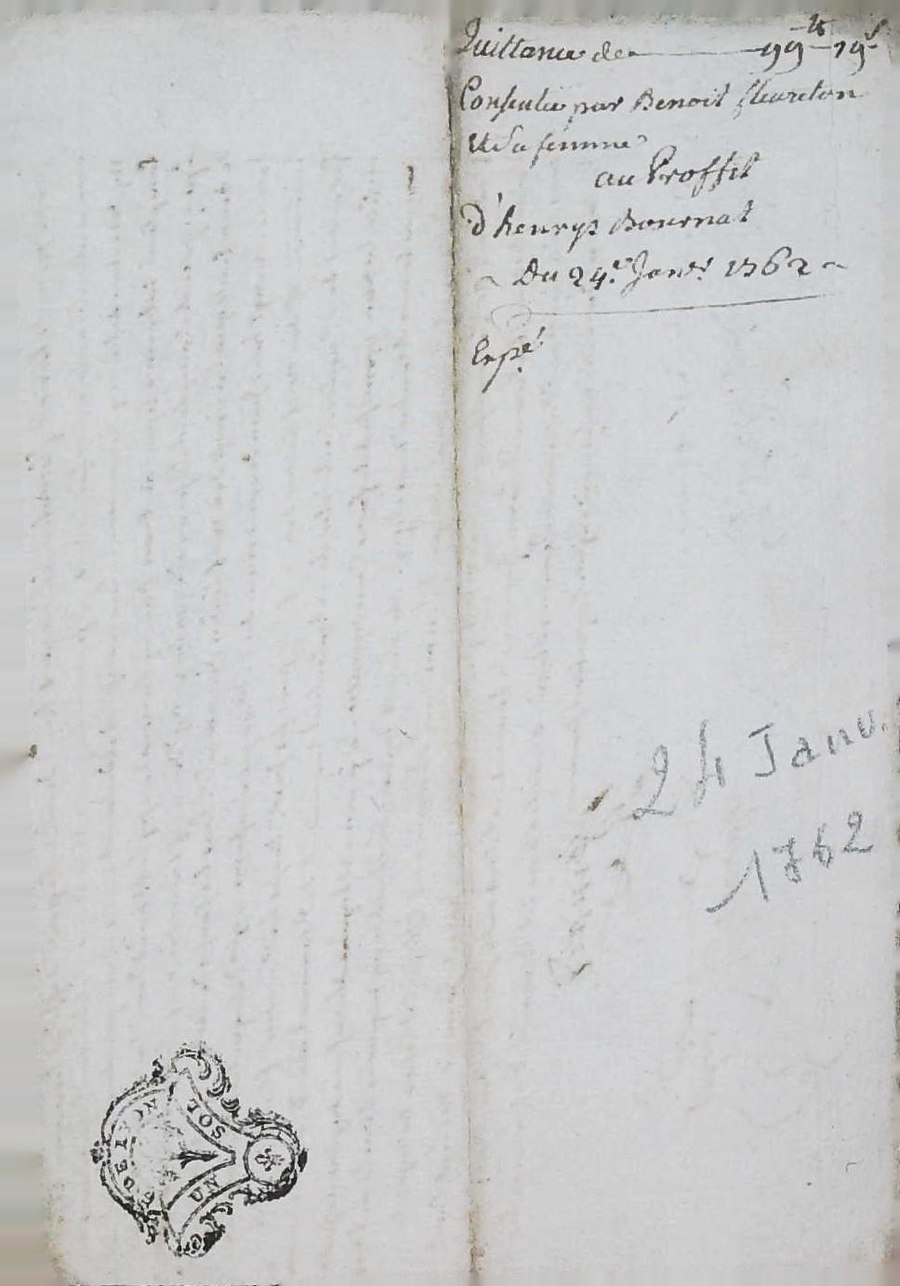 Quittance de 99 ₶ 19 s
Consentie par Benoit fleureton
Et Sa femme
au Proffit
d'henrys Bournat
Du 24.e Janv.r 1762
Exp.é
24 Janv.
1762
UN SOL